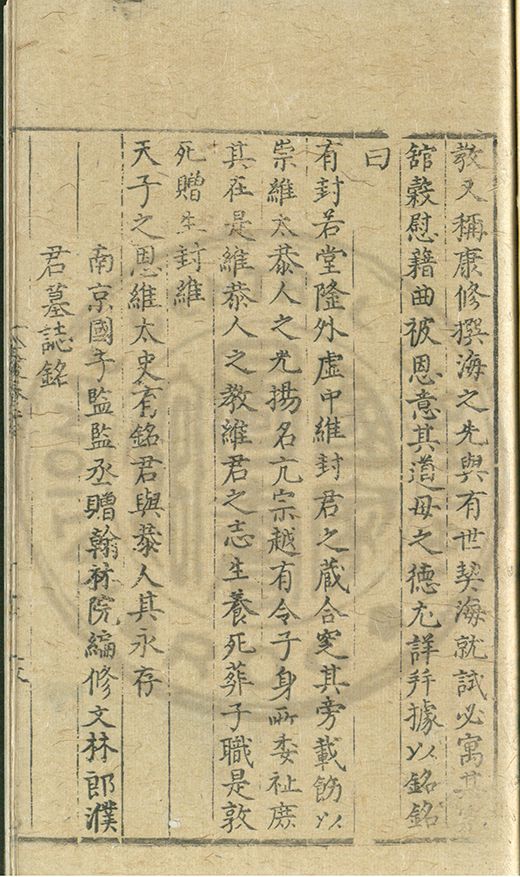 敎又稱康修撰海之先與有世契海就試必寓其
舘穀慰藉曲被恩意其道母之德尤詳幷據以銘銘
曰
有封若堂隆外虛中維封君之蔵合窆其旁載飭以
崇維太恭人之光揚名亢宗越有令子身所委祉庶
其在是維恭人之教維君之志生養死葬子職是敦
死贈生封維
天子之恩維太史有銘君與恭人其永存
南京國子監監丞贈翰林院編修文林郎濮
君墓誌銘